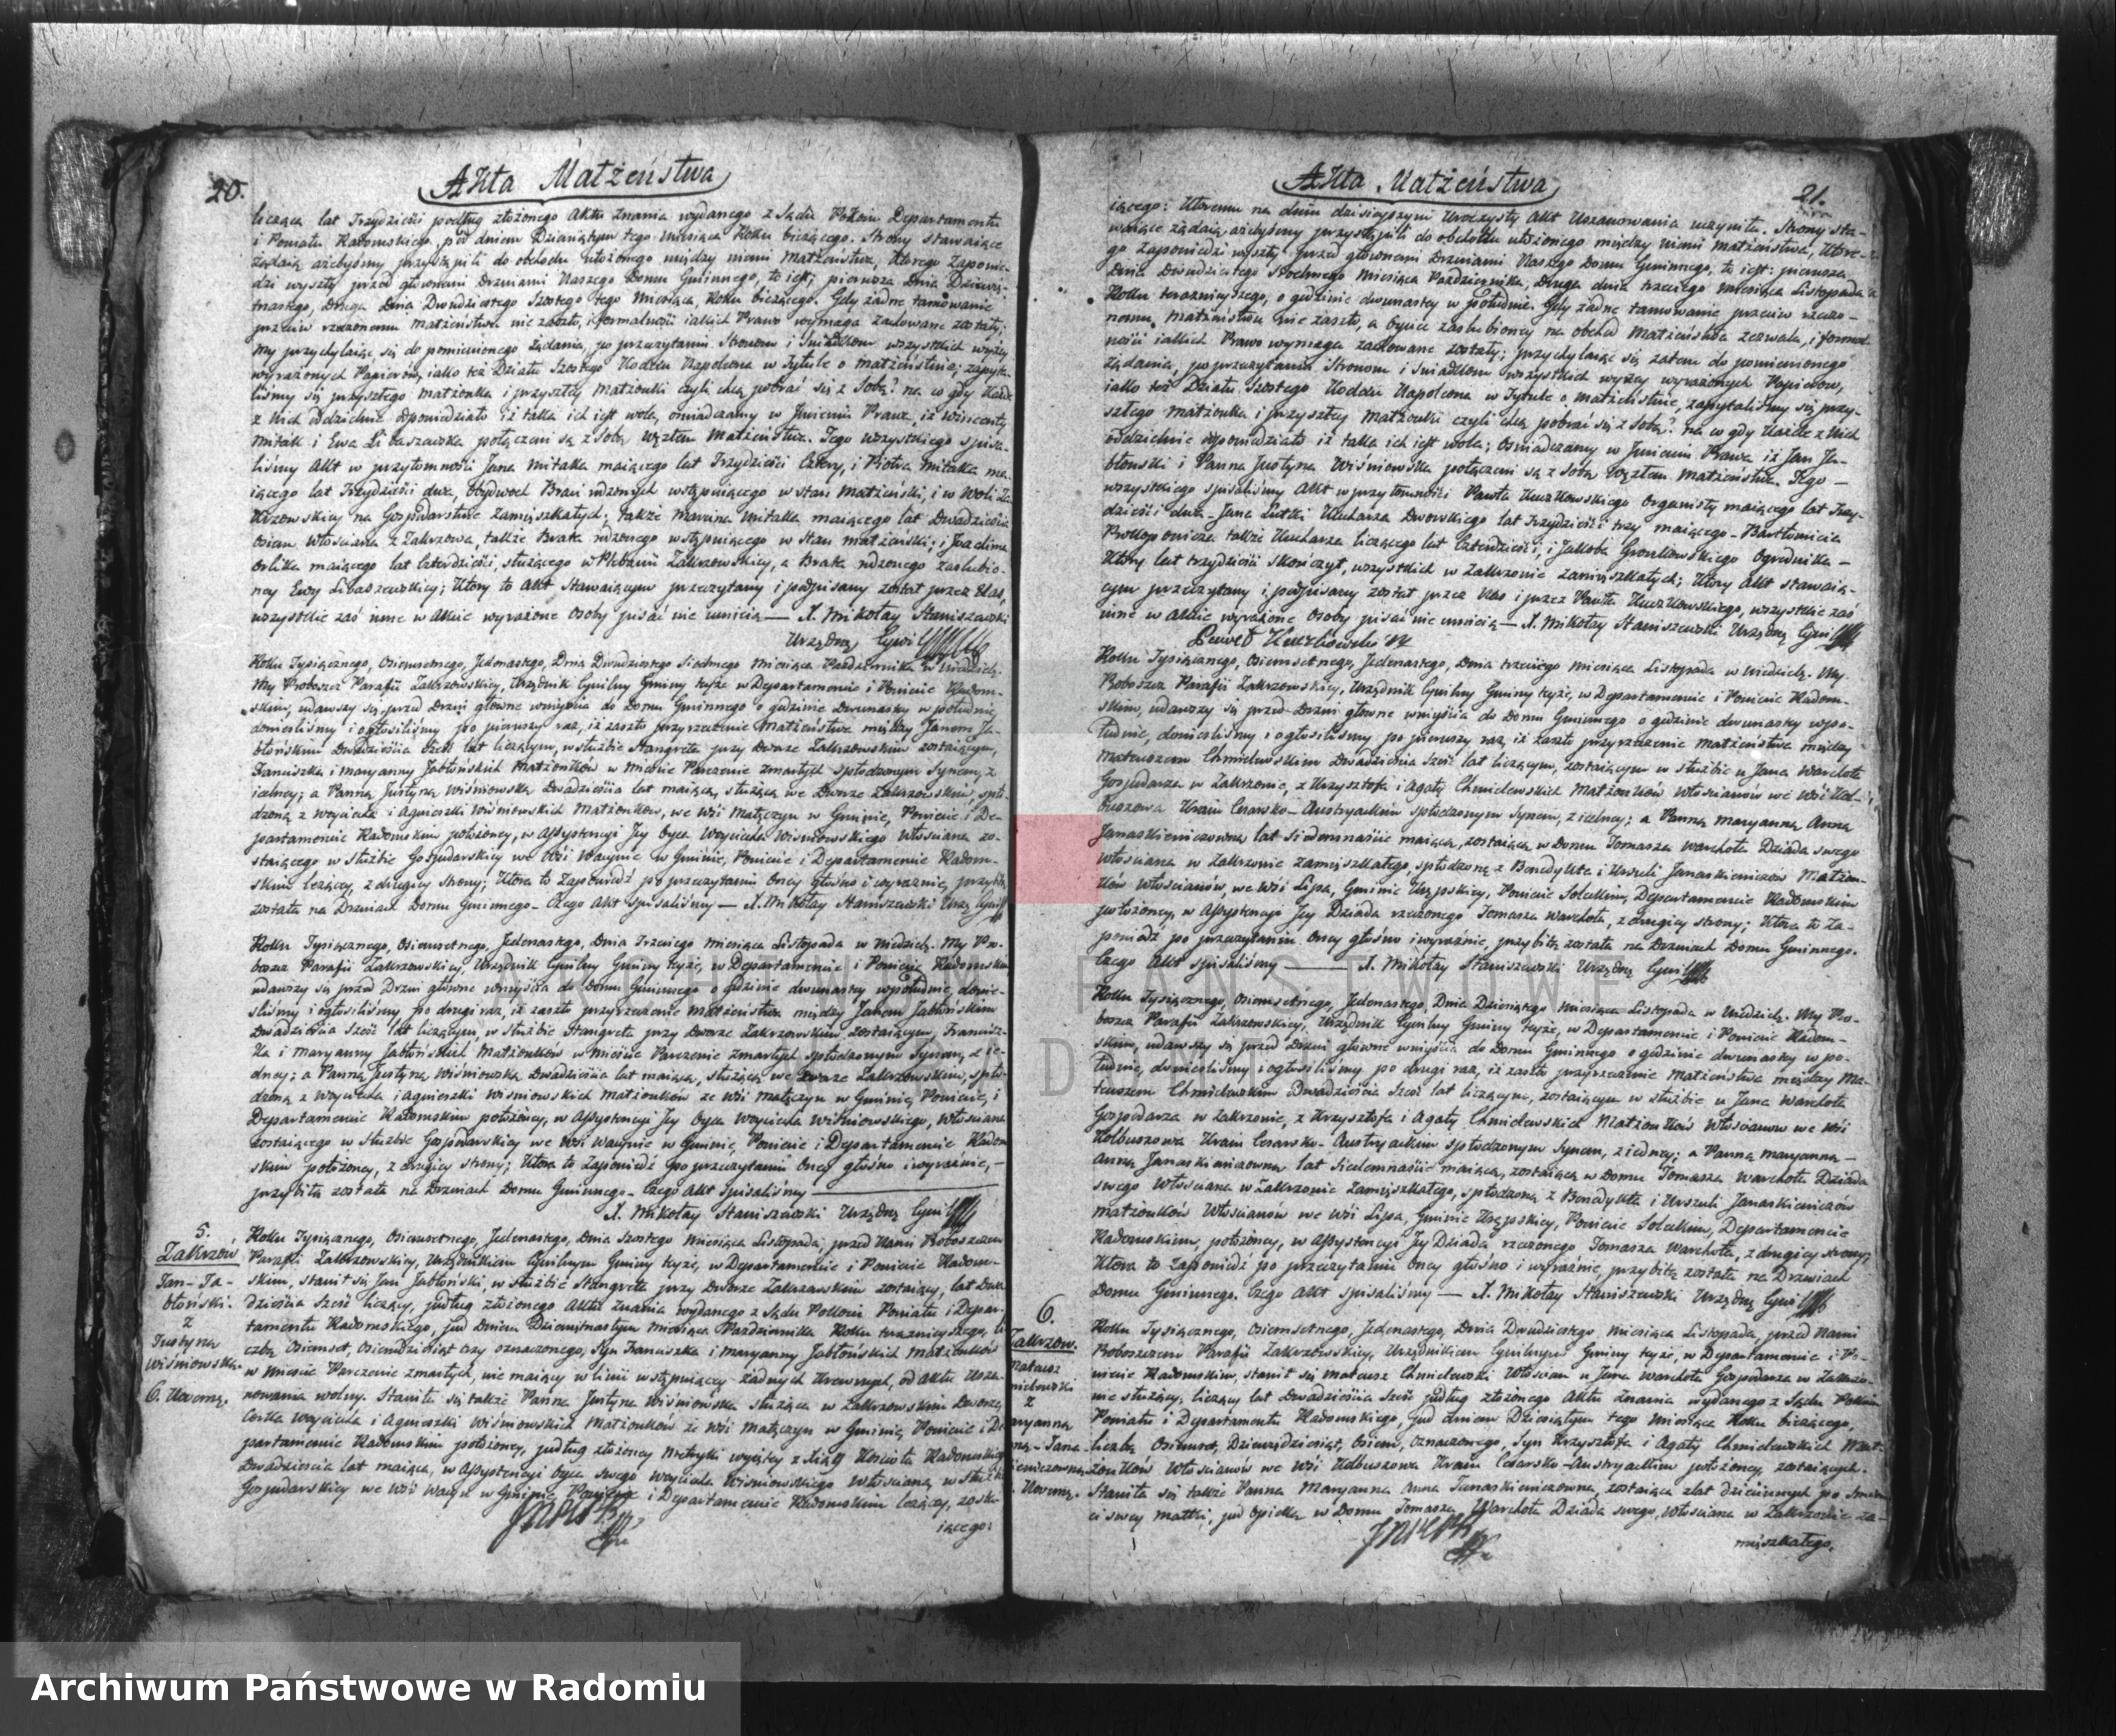 20.
Akta Małżeństwa
licząca lat Trzydzieści podług złożonego Aktu Znania wydanego z Sądu Pokoiu Departamentu
i Powiatu Radomskiego, pod dniem Dziewiątym tego miesiąca Roku bieżącego. Strony stawaiące
żądaią ażebyśmy przystąpili do obchodu ułożonego między niemi Małżeństwa, którego Zapowie-
dzi wyszły przed głównemi Drzwiami Naszego Domu Gminnego, to iest; pierwsza Dnia Dziewię-
tnastego, Druga Dnia Dwudziestego Szóstego tego Miesiąca, Roku bieżącego. Gdy żadne tamowanie
przeciw rzeczonemu Małżeństwu nie zaszło, i formalności iakich Prawo wymaga zachowane zostały;
My przychylaiąc się do pomienionego żądania, po przeczytaniu Stronom i Świadkom wszystkich wyżey
wyrażonych Papierów, iako też Działu Szóstego Kodexu Napoleona w Tytule o Małżeństwie; zapyta-
liśmy się przyszłego Małżonka i przyszłey Małżonki czyli chcą pobrać się z Sobą? na co gdy każde
z Nich oddzielnie odpowiedziało iż taka ich iest wola, oświadczamy w Imieniu Prawa, iż Wincenty
Mitak i Ewa Libaszewska połączeni są z Sobą węzłem Małżeństwa. Tego wszystkiego spisa-
liśmy Akt w przytomności Jana Mitaka maiącego lat Trzydzieści Cztery, i Piotra Mitaka ma-
iącego lat Trzydzieści dwa, obydwóch Braci rodzonych wstępuiącego w stan Małżeński, i w Woli Za-
krzowskiey na Gospodarstwie zamięszkałych; także Marcina Mitaka maiącego lat Dwadzieścia
Osiem Włościana z Zakrzowa, także Brata rodzonego wstępuiącego w Stan małżeński; i Joachima
Orlika maiącego lat Czterdzieści, służącego w Plebanii Zakrzowskiey, a Brata rodzonego zaślubio-
ney Ewy Libaszewskiey; który to Akt Stawaiącym przeczytany i podpisany został przez Nas,
wszystkie zaś inne w Akcie wyrażone Osoby pisać nie umieią — X. Mikołay Staniszewski
Urzędnik Cywil
Roku Tysiącznego, Osiemsetnego, Jedenastego, Dnia Dwudziestego Siódmego Miesiąca Października w Niedzielę.
My Proboszcz Parafii Zakrzowskiey, Urzędnik Cywilny Gminy teyże w Departamencie i Powiecie Radom-
skim, udawszy się przed Drzwi główne wniyścia do Domu Gminnego o godzinie Dwunastey w południe,
donieśliśmy i ogłosiliśmy po pierwszy raz, iż zaszło przyrzeczenie Małżeństwa między Janem Ja-
błońskim Dwadzieścia Sześć lat liczącym, w służbie Stangreta przy Dworze Zakrzowskim zostaiącym,
Franciszka i Maryanny Jabłońskich Małżonków w Mieście Parczewie zmarłych spłodzonym Synem, z
iedney; a Panną Justyną Wiśniowską Dwadzieścia lat maiącą, służącą we Dworze Zakrzowskim, spło-
dzoną z Woyciecha i Agnieszki Wiśniowskich Małżonków, we Wsi Małęczyn w Gminie, Powiecie i De-
partamencie Radomskim położoney, w Assystencyi Jey Oyca Woyciecha Wiśniowskiego Włościana zo-
staiącego w służbie Gospodarskiey we Wsi Wacynie w Gminie, Powiecie i Departamencie Radom-
skim leżącey, z drugiey strony; Która to Zapowiedź po przeczytaniu Oney głośno i wyraźnie, przybitą
została na Drzwiach Domu Gminnego. Czego Akt spisaliśmy — X. Mikołay Staniszewski Urzę. Cywil
Roku Tysiącznego, Osiemsetnego, Jedenastego, Dnia Trzeciego Miesiąca Listopada w Niedzielę. My Pro-
boszcz Parafii Zakrzowskiey, Urzędnik Cywilny Gminy teyże, w Departamencie i Powiecie Radomskim
udawszy się przed Drzwi główne wniyścia do Domu Gminnego o godzinie dwunastey w południe, donie-
śliśmy i ogłosiliśmy po drugi raz, iż zaszło przyrzeczenie Małżeństwa między Janem Jabłońskim
Dwadzieścia Sześć lat liczącym, w służbie Stangreta przy Dworze Zakrzowskim zostaiącym, Francisz-
ka i Maryanny Jabłońskich Małżonków w Mieście Parczewie zmarłych spłodzonym Synem, z ie-
dney; a Panną Justyną Wiśniowską Dwadzieścia lat maiącą, służącą we Dworze Zakrzowskim, spło-
dzoną z Woyciecha i Agnieszki Wiśniowskich Małżonków ze Wsi Małęczyn w Gminie, Powiecie, i
Departamencie Radomskim położoney, w Assystencyi Jey Oyca Woyciecha Wiśniowskiego, Włościana
Zostaiącego w służbie Gospodarskiey we Wsi Wacynie w Gminie, Powiecie i Departamencie Radom-
skim położoney, z drugiey strony; Która to Zapowiedź po przeczytaniu Oney głośno i wyraźnie, —
przybitą została na Drzwiach Domu Gminnego. Czego Akt spisaliśmy —
X. Mikołay Staniszewski Urzędnik Cywil
5.
Zakrzów
Jan Ja-
błoński.
z
Justyną
Wiśniowską.
Roku Tysiącznego, Osiemsetnego, Jedenastego, Dnia Szóstego Miesiąca Listopada, przed Nami Proboszczem
Parafii Zakrzowskiey, Urzędnikiem Cywilnym Gminy teyże, w Departamencie i Powiecie Radom-
skim, stawił się Jan Jabłoński, w służbie Stangreta przy Dworze Zakrzowskim zostaiący, lat Dwa-
dzieścia Sześć liczący, podług złożonego Aktu Znania wydanego z Sądu Pokoiu Powiatu i Depar-
tamentu Radomskiego, pod Dniem Dziewiętnastym Miesiąca Października Roku teraźnieyszego, li-
czbą Osiemset, Osiemdziesiąt trzy oznaczonego, Syn Franciszka i Maryanny Jabłońskich Małżonków
w Mieście Parczewie zmarłych, nie maiący w linii wstępuiącey żadnych Krewnych, od Aktu Usza-
nowania wolny. Stawiła się także Panna Justyna Wiśniowska służąca w Zakrzowskim Dworze,
Córka Woyciecha i Agnieszki Wiśniowskich Małżonków ze Wsi Małęczyn w Gminie, Powiecie i De-
partamencie Radomskim położoney, podług złożoney Metryki wyiętey z Xiąg Kościoła Radomskiego
Dwadzieścia lat maiąca, w Assystencyi Oyca swego Woyciecha Wiśniowskiego Włościana, w służbie
Gospodarskiey we Wsi Wacyn w Gminie Powiecie i Departamencie Radomskim leżącey, zosta-
iącego:
Akta Małżeństwa
21.
iącego: któremu na dniu dzisieyszym Uroczysty Akt Uszanowania uczyniła. Strony sta-
waiące żądaią, ażebyśmy przystąpili do obchodu ułożonego między niemi Małżeństwa, które-
go Zapowiedzi wyszły przed głównemi Drzwiami Naszego Domu Gminnego, to iest: pierwsza
Dnia Dwudziestego Siódmego Miesiąca Października, Druga dnia trzeciego Miesiąca Listopada
Roku teraźnieyszego, o godzinie dwunastey w południe. Gdy żadne tamowanie przeciw rzeczo-
nemu Małżeństwu nie zaszło, a Oyciec zaślubioney na obchód Małżeństwa zezwala, i formal-
ności iakich Prawo wymaga zachowane zostały; przychylaiąc się zatem do pomienionego
żądania, po przeczytaniu Stronom i Świadkom wszystkich wyżey wyrażonych Papierów,
iako też Działu Szóstego Kodexu Napoleona w Tytule o Małżeństwie, zapytaliśmy się przy-
szłego Małżonka i przyszłey Małżonki czyli chcą pobrać się z Sobą? na co gdy każde z Nich
oddzielnie odpowiedziało iż taka ich iest wola; Oświadczamy w Imieniu Prawa iż Jan Ja-
błoński i Panna Justyna Wiśniowska połączeni są z Sobą Węzłem Małżeństwa. Tego —
wszystkiego spisaliśmy Akt w przytomności Pawła Kuczkowskiego Organisty maiącego lat Trzy-
dzieści dwa, Jana Lutki Kucharza Dworskiego lat Trzydzieści trzy maiącego, Bartłomieia
Prokopowicza także Kucharza liczącego lat Czterdzieści, i Jakóba Gronkowskiego Ogrodnika —
który lat trzydzieści skończył, wszystkich w Zakrzowie zamięszkałych; Który Akt stawaią-
cym przeczytany i podpisany został przez Nas i przez Pawła Kuczkowskiego, wszystkie zaś
inne w Akcie wyrażone Osoby pisać nie umieią — X. Mikołay Staniszewski Urzędnik Cywil
Paweł Kuczkowski
Roku Tysiącznego, Osiemsetnego, Jedenastego, Dnia trzeciego Miesiąca Listopada w Niedzielę. My
Proboszcz Parafii Zakrzowskiey, Urzędnik Cywilny Gminy teyże, w Departamencie i Powiecie Radom-
skim, udawszy się przed Drzwi główne wniyścia do Domu Gminnego o godzinie dwunastey w po-
łudnie, donieśliśmy i ogłosiliśmy po pierwszy raz, iż zaszło przyrzeczenie Małżeństwa między
Mateuszem Chmielewskim Dwadzieścia Sześć lat liczącym, zostaiącym w służbie u Jana Warchoła
Gospodarza w Zakrzowie, z Krzysztofa i Agaty Chmielewskich Małżonków Włościanów we Wsi Kol-
buszowa Kraiu Cesarsko-Austryackim spłodzonym Synem, z iedney; a Panną Maryanną Anną
Janaskiewiczówną lat Siedemnaście maiącą, zostaiącą w Domu Tomasza Warchoła Dziada swego
Włościana w Zakrzowie zamięszkałego, spłodzoną z Benedykta i Urszuli Janaskiewiczów Małżon-
ków Włościanów, we Wsi Lipa, Gminie Krępskiey, Powiecie Soleckim, Departamencie Radomskim
położoney, w Assystencyi Jey Dziada rzeczonego Tomasza Warchoła, z drugiey strony; Która to Za-
powiedź po przeczytaniu Oney głośno i wyraźnie, przybitą została na Drzwiach Domu Gminnego.
Czego Akt spisaliśmy — X. Mikołay Staniszewski Urzędnik Cywil
Roku Tysiącznego, Osiemsetnego, Jedenastego, Dnia Dziesiątego Miesiąca Listopada w Niedzielę. My Pro-
boszcz Parafii Zakrzowskiey, Urzędnik Cywilny Gminy teyże, w Departamencie i Powiecie Radom-
skim, udawszy się przed Drzwi główne wniyścia do Domu Gminnego o godzinie dwunastey w po-
łudnie, donieśliśmy i ogłosiliśmy po drugi raz, iż zaszło przyrzeczenie Małżeństwa między Ma-
teuszem Chmielewskim Dwadzieścia Sześć lat liczącym, zostaiącym w służbie u Jana Warchoła
Gospodarza w Zakrzowie, z Krzysztofa i Agaty Chmielewskich Małżonków Włościanów we Wsi
Kolbuszowa Kraiu Cesarsko-Austryackim spłodzonym Synem, z iedney; a Panną Maryanną —
Anną Janaskiewiczówną lat Siedemnaście maiącą, zostaiącą w Domu Tomasza Warchoła Dziada
swego Włościana w Zakrzowie zamięszkałego, spłodzoną z Benedykta i Urszuli Janaskiewiczów
Małżonków Włościanów we Wsi Lipa, Gminie Krępskiey, Powiecie Soleckim, Departamencie
Radomskim, położoney, w Assystencyi Jey Dziada rzeczonego Tomasza Warchoła, z drugiey strony;
Która to Zapowiedź po przeczytaniu Oney głośno i wyraźnie, przybitą została na Drzwiach
Domu Gminnego. Czego Akt spisaliśmy — X. Mikołay Staniszewski Urzędnik Cywil
6.
Zakrzow.
Roku Tysiącznego, Osiemsetnego, Jedenastego, Dnia Dwudziestego Miesiąca Listopada, przed Nami
Proboszczem Parafii Zakrzowskiey, Urzędnikiem Cywilnym Gminy teyże, w Departamencie i Po-
wiecie Radomskim, stawił się Mateusz Chmielewski Włościan u Jana Warchoła Gospodarza w Zakrzo-
wie służący, liczący lat Dwadzieścia Sześć podług złożonego Aktu Znania wydanego z Sądu Pokoiu
Powiatu i Departamentu Radomskiego, pod dniem Dziesiątym tego Miesiąca Roku bieżącego,
liczbą Osiemset, Dziewięćdziesiąt, Osiem, oznaczonego, Syn Krzysztofa i Agaty Chmielewskich Mał-
żonków Włościanów we Wsi Kolbuszowa Kraiu Cesarsko-Austryackim położoney, zostaiących.
Stawiła się także Panna Maryanna Anna Janaskiewiczówna, zostaiąca z lat dziecinnych po śmier-
ci swey Matki, pod opieką w Domu Tomasza Warchoła Dziada swego, Włościana w Zakrzowie za-
mięszkałego,
ARCHIWUM PAŃSTWOWE
W RADOMIU
Archiwum Państwowe w Radomiu